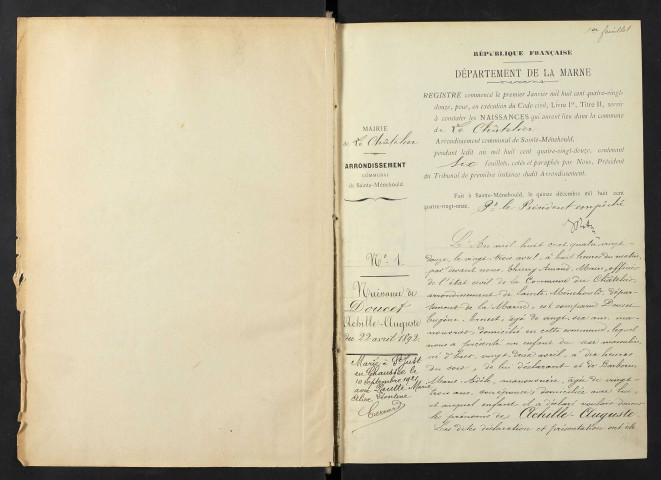 1er feuillet
RÉPUBLIQUE FRANÇAISE
DÉPARTEMENT DE LA MARNE
REGISTRE commencé le premier Janvier mil huit cent quatre-vingt-
douze, pour, en exécution du Code civil, Livre Ier, Titre II, servir
à constater les NAISSANCES qui auront lieu dans la commune
de Le Châtelier
Arrondissement communal de Sainte-Ménehould,
pendant ledit an mil huit cent quatre-vingt-douze, contenant
six feuillets, cotés et paraphés par Nous, Président
du Tribunal de première instance dudit Arrondissement.
Fait à Sainte-Ménehould, le quinze décembre mil huit cent
quatre-vingt-onze. Pr le Président empêché
MAIRIE
de Le Châtelier
ARRONDISSEMENT
COMMUNAL
de Sainte-Ménehould.
N° 1
Naissance de
Doucet
Achille-Auguste
du 22 avril 1892
Marié à St Just
en Chaussée le
10 septembre 1921
avec
Marie
L'An mil huit cent quatre-vingt-
douze, le vingt-trois avril, à huit heures du matin,
par devant nous, Thierry Amand, Maire, officier
de l'état civil de la Commune du Châtelier,
arrondissement de Sainte-Ménehould, dépar-
tement de la Marne, est comparu Doucet
Eugène Ernest, âgé de vingt-six ans, ma-
nouvrier, domicilié en cette commune, lequel
nous a présenté un enfant du sexe masculin
né d'hier, vingt-deux avril, à dix heures
du soir, de lui déclarant et de
Marie Adèle, manouvrière, âgée de vingt-
trois ans, son épouse, domiciliée avec lui,
et auquel enfant il a déclaré vouloir donner
le prénoms de Achille-Auguste
Les dites déclaration et présentation ont été